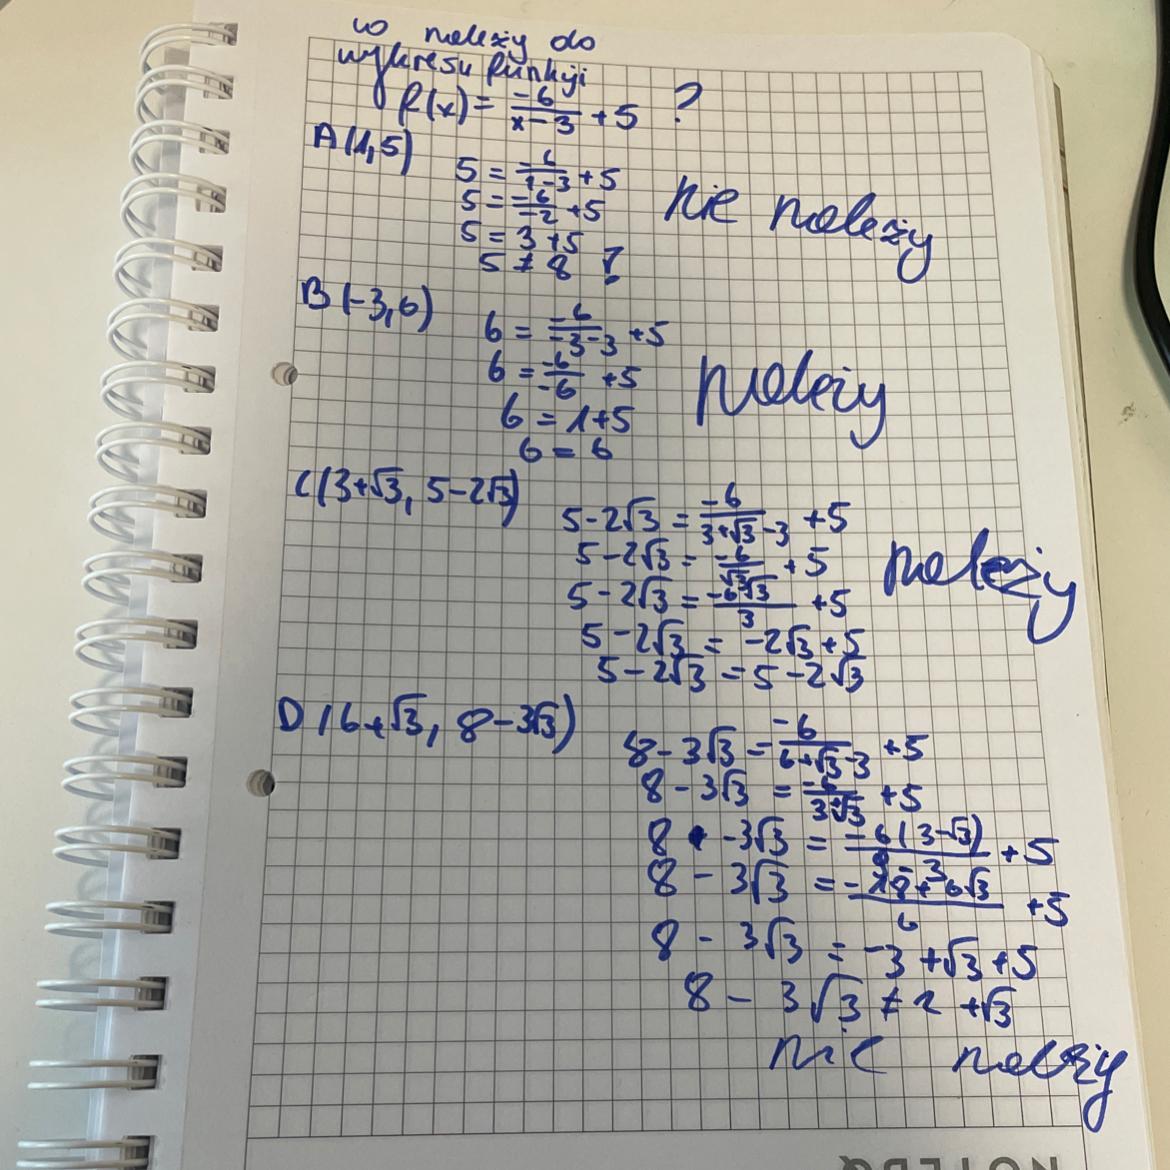 co należy do
wykresu funkcji
f(x) = -6/(x-3) + 5 ?
A(1,5)
5 = -6/(1-3) + 5
5 = -6/-2 + 5
5 = 3 + 5
5 ≠ 8 !
nie należy
B(-3,6)
6 = -6/(-3-3) + 5
6 = -6/-6 + 5
6 = 1 + 5
6 = 6
należy
C(3+√3, 5-2√3)
5-2√3 = -6/(3+√3-3) + 5
5-2√3 = -6/√3 + 5
5-2√3 = -6√3/3 + 5
5-2√3 = -2√3 + 5
5-2√3 = 5-2√3
należy
D(6+√3, 8-3√3)
8-3√3 = -6/(6+√3-3) + 5
8-3√3 = -6/(3+√3) + 5
8-3√3 = -6(3-√3)/(9-3) + 5
8-3√3 = (-18+6√3)/6 + 5
8-3√3 = -3+√3+5
8-3√3 ≠ 2+√3
nie należy